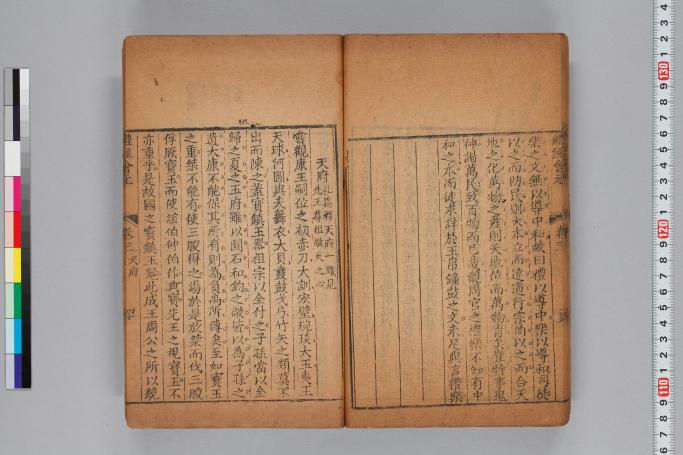 樂之文無以導中和故曰禮以導中樂以導和司徒
以之而防民則大本立而達道行宗伯以之而合天
地之化萬物之產則天地位而萬物育豈特事鬼
神諧萬民致百物而已哉嗣官之禮樂不知有中
和之本而徒求詳於玉帛鐘鼓之文未足與言禮樂
天府
嘗觀康王嗣位之初赤刀大訓宏璧琬琰大玉夷玉
天球河圖與夫舞衣大貝鼖鼓戈弓竹矢之類莫不
出而陳之蓋寶鎮玉器祖宗以全付之子孫當以全
歸之夏之玉府雖以關石和鈞之微皆以為子孫之
遺太康不能保其所有則為負禹所傳矣至如寶玉
之重桀不能有使三朡得之湯於是放桀而伐三朡
俘厥寶玉而使誼伯仲伯作典寶先王之視寶玉不
亦重乎是故國之寶鎮玉器此成王周公之所以
卷三 天府
130
120
110